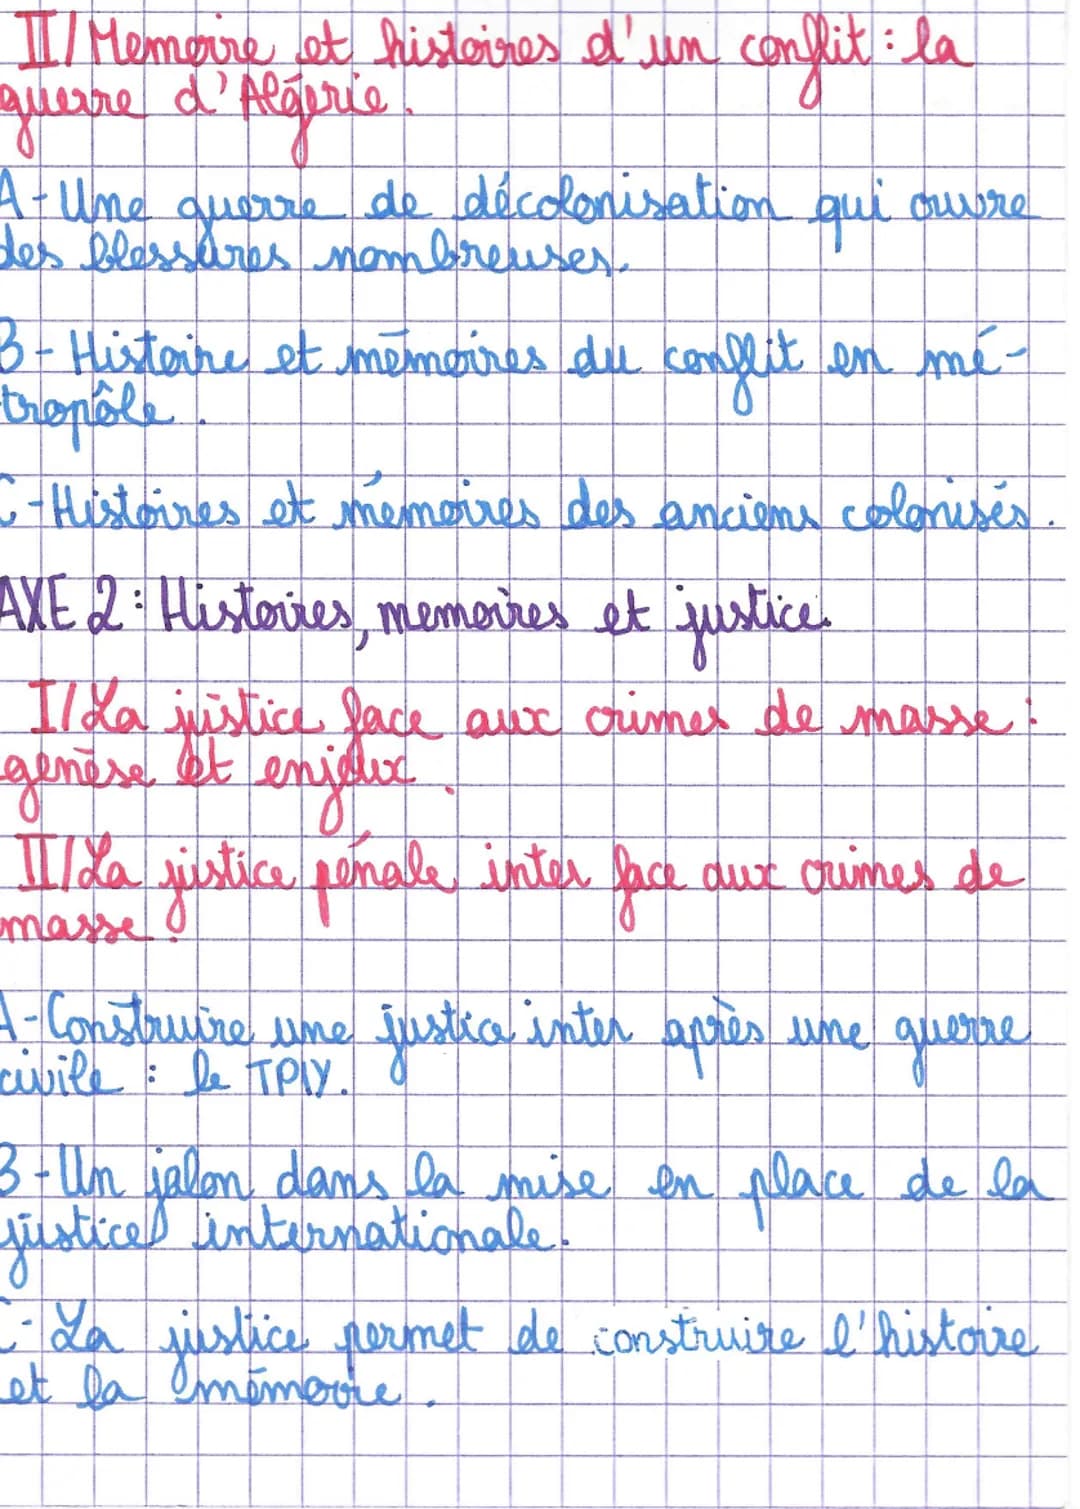 II/Memoire et histoires d'un conflit : la
guerre d'Algérie.
A-Une guerre de décolonisation qui ouvre
des blessures nombreuses.
B-Histoire et mémoires du conflit en mé-
tropôle.
C-Histoires et mémoires des anciens colonisés.
AXE 2 : Histoires, memoires et justice.
I/La justice face aux crimes de masse :
genèse et enjeux.
II/La justice pénale inter face aux crimes de
masse.
A-Construire une justice inter après une guerre
civile : le TPIY.
B-Un jalon dans la mise en place de la
justice internationale.
C-La justice permet de construire l'histoire
et la mémoire.